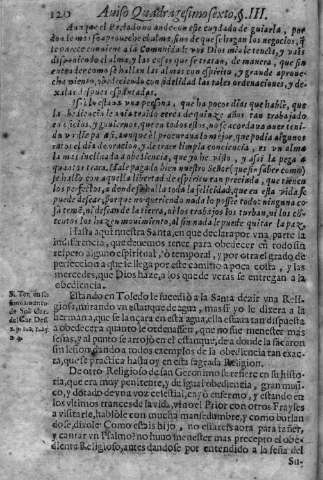 Aviso Quadragesimosexto, §. III.
Aunque el Prelado no ande con este cuydado de guiarla, por
donde mas se aproveche el alma, sino de que se hagan los negocios, que
le parece conviene a la Comunidad: vos Dios mio le teneis, y vais
disponiendo el alma, y las cosas que se tratan, de manera, que sin
entender como se hallan las almas con espiritu, y grande aprove-
chamiento, obedeciendo con fidelidad las tales ordenaciones, y de-
despues espantadas.
Assi lo estava una persona, que ha pocos dias que hablè, que
la obediencia le avia traido cerca de quinze años tan trabajado
en oficios, y goviernos, que en todos estos, no se acordava aver teni-
do un dia para si, aunque èl procurava lo mejor, que podia algunos
ratos al dia de oracion, y de traer limpia conciencia, es un alma
la mas inclinada a obediencia, que yo he visto, y assi la pega a
quantos trata. Hale pagado bien nuestro Señor (que sin saber como)
se hallo con aquella libertad de espiritu tan preciada, que tienen
los perfectos, a donde se halla toda la felicidad, que en esta vida se
puede desear, porque no queriendo nada lo possee todo: ninguna co-
sa teme, ni desean de la tierra, ni los trabajos los turban, ni los con-
tentos los hazen movimiento, al fin nadie le puede quitar la paz.
Hasta aqui nuestra Santa, en que declara por una parte la
indiferencia, que devemos tener para obedecer en todo sin
respeto alguno espiritual, ò temporal, y por otra el grado de
perfeccion a que se llega por este camino a poca costa, y las
mercedes, que Dios haze, a los que de veras se entregan a la
obediencia.
Estando en Toledo le sucediò a la Santa dezir una Reli-
giosa, mirando un estanque de agua, mas si yo le dixera a la
hermana, que se lançara en esta agua, ella estava tan dispuesta
a obedecer a quanto le ordenassen, que no fue menester mas
señas, y al punto se arrojò en el estanque, de a donde la sacaron
sin lesion, dando a todos exemplos de la obediencia tan exac-
ta, que se practica hasta oy en esta sagrada Religion.
De otro Religioso de san Geronimo se refiere en su histo-
ria, que era muy penitente, y de igual obediencia, gran musi-
co, y dotado de una voz celestial, cayò enfermo, y estando en
los ultimos trances de la vida, vino el Prior con otros Frayles
a visitarle, hablòle con mucha mansedumbre, y como burlan-
do se, dixole: Como estais hijo, no estareis aora para tañer,
y cantar un Psalmo? no huvo menester mas precepto el obe-
diente Religioso, antes dandose por entendido a la seña del
Su-